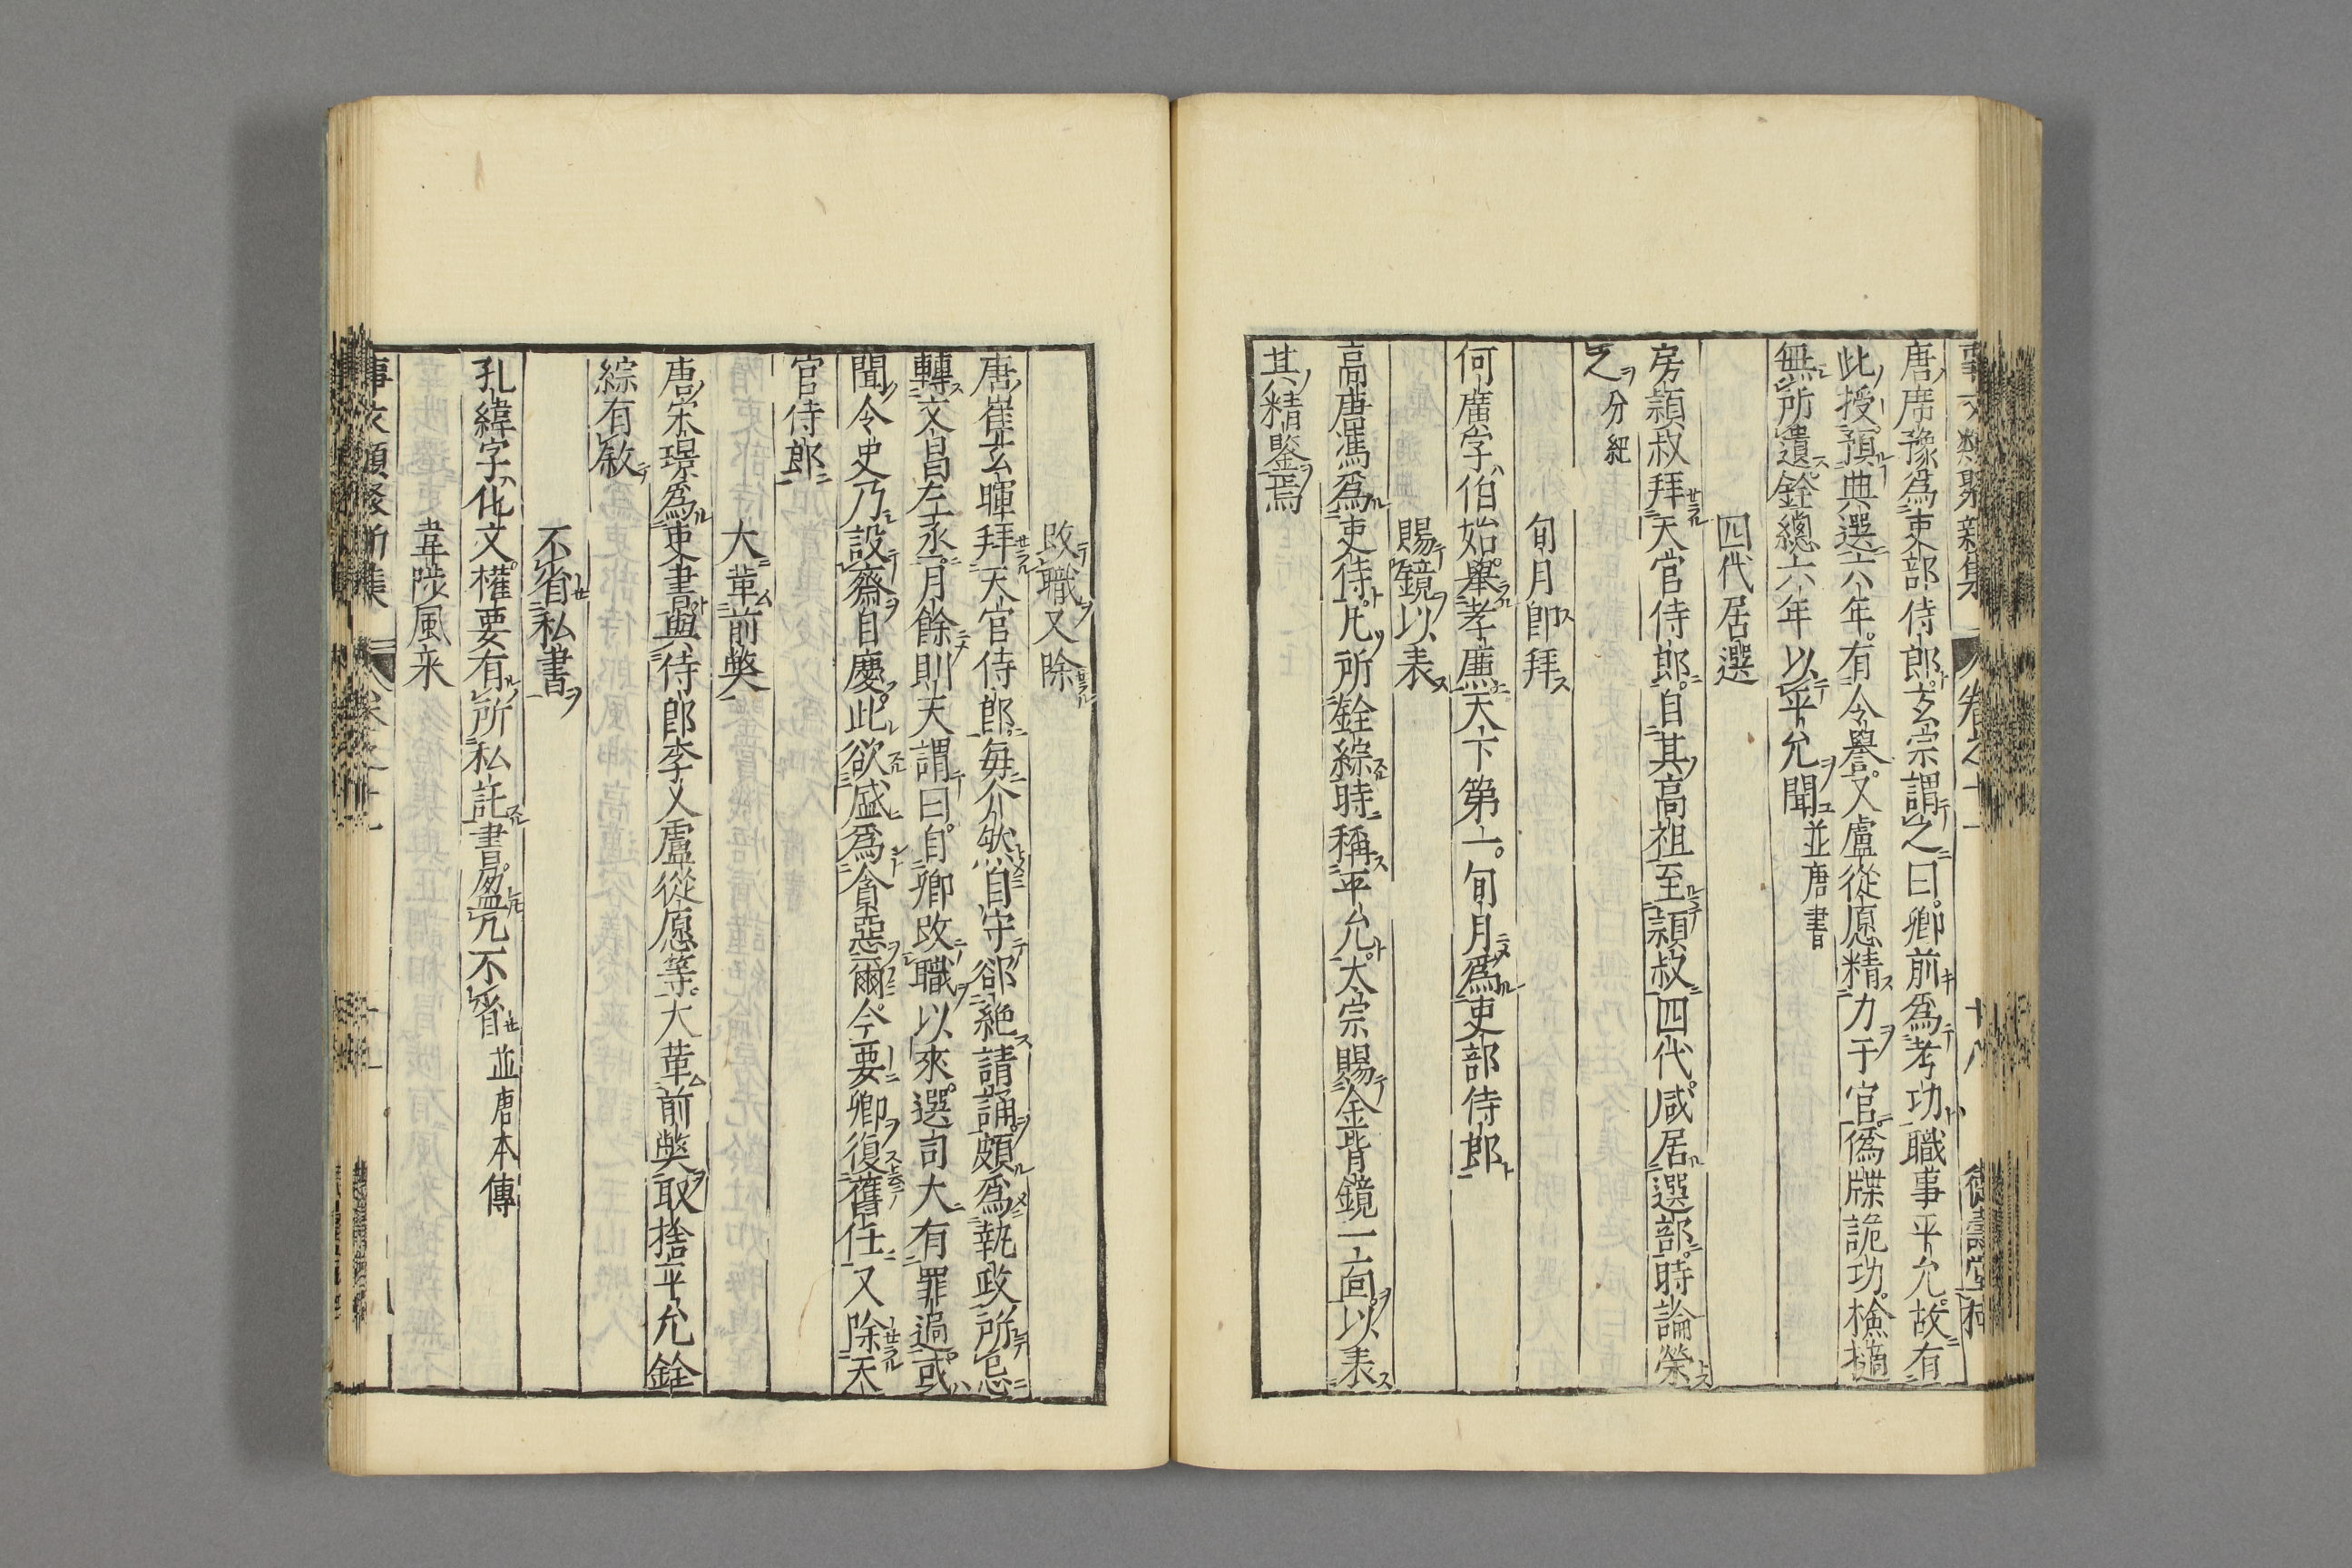 唐席豫爲吏部侍郎玄宗謂之曰卿前爲考功職事平允故有
此授預典選六年有令譽又盧從愿精力于官僞牒詭功檢擿
無所遺銓總六年以平允聞並唐書
四代居選
房頴叔拜天官侍郎自其高祖至頴叔四代咸居選部時論榮
之分紀
旬月即拜
何廣字伯始舉孝廉天下第一旬月爲吏部侍郎
賜鏡以表
高唐馮爲吏侍凡所銓綜時稱平允太宗賜金背鏡一面以表
其精鑒焉
改職又除
唐崔玄暐拜天官侍郎每介然自守郤絶請誦頗爲執政所忌
轉文昌左丞月餘則天謂曰自卿改職以來選司大有罪過或
聞令史乃設齋自慶此欲盛爲貪惡爾今要卿復舊任又除天
官侍郎
大革前獘
唐宋璟爲吏書與侍郎李乂盧從愿等大革前獘取捨平允銓
綜有敘
不省私書
孔緯字化文權要有所私託書盈几不省並唐本傳
韋陟風采